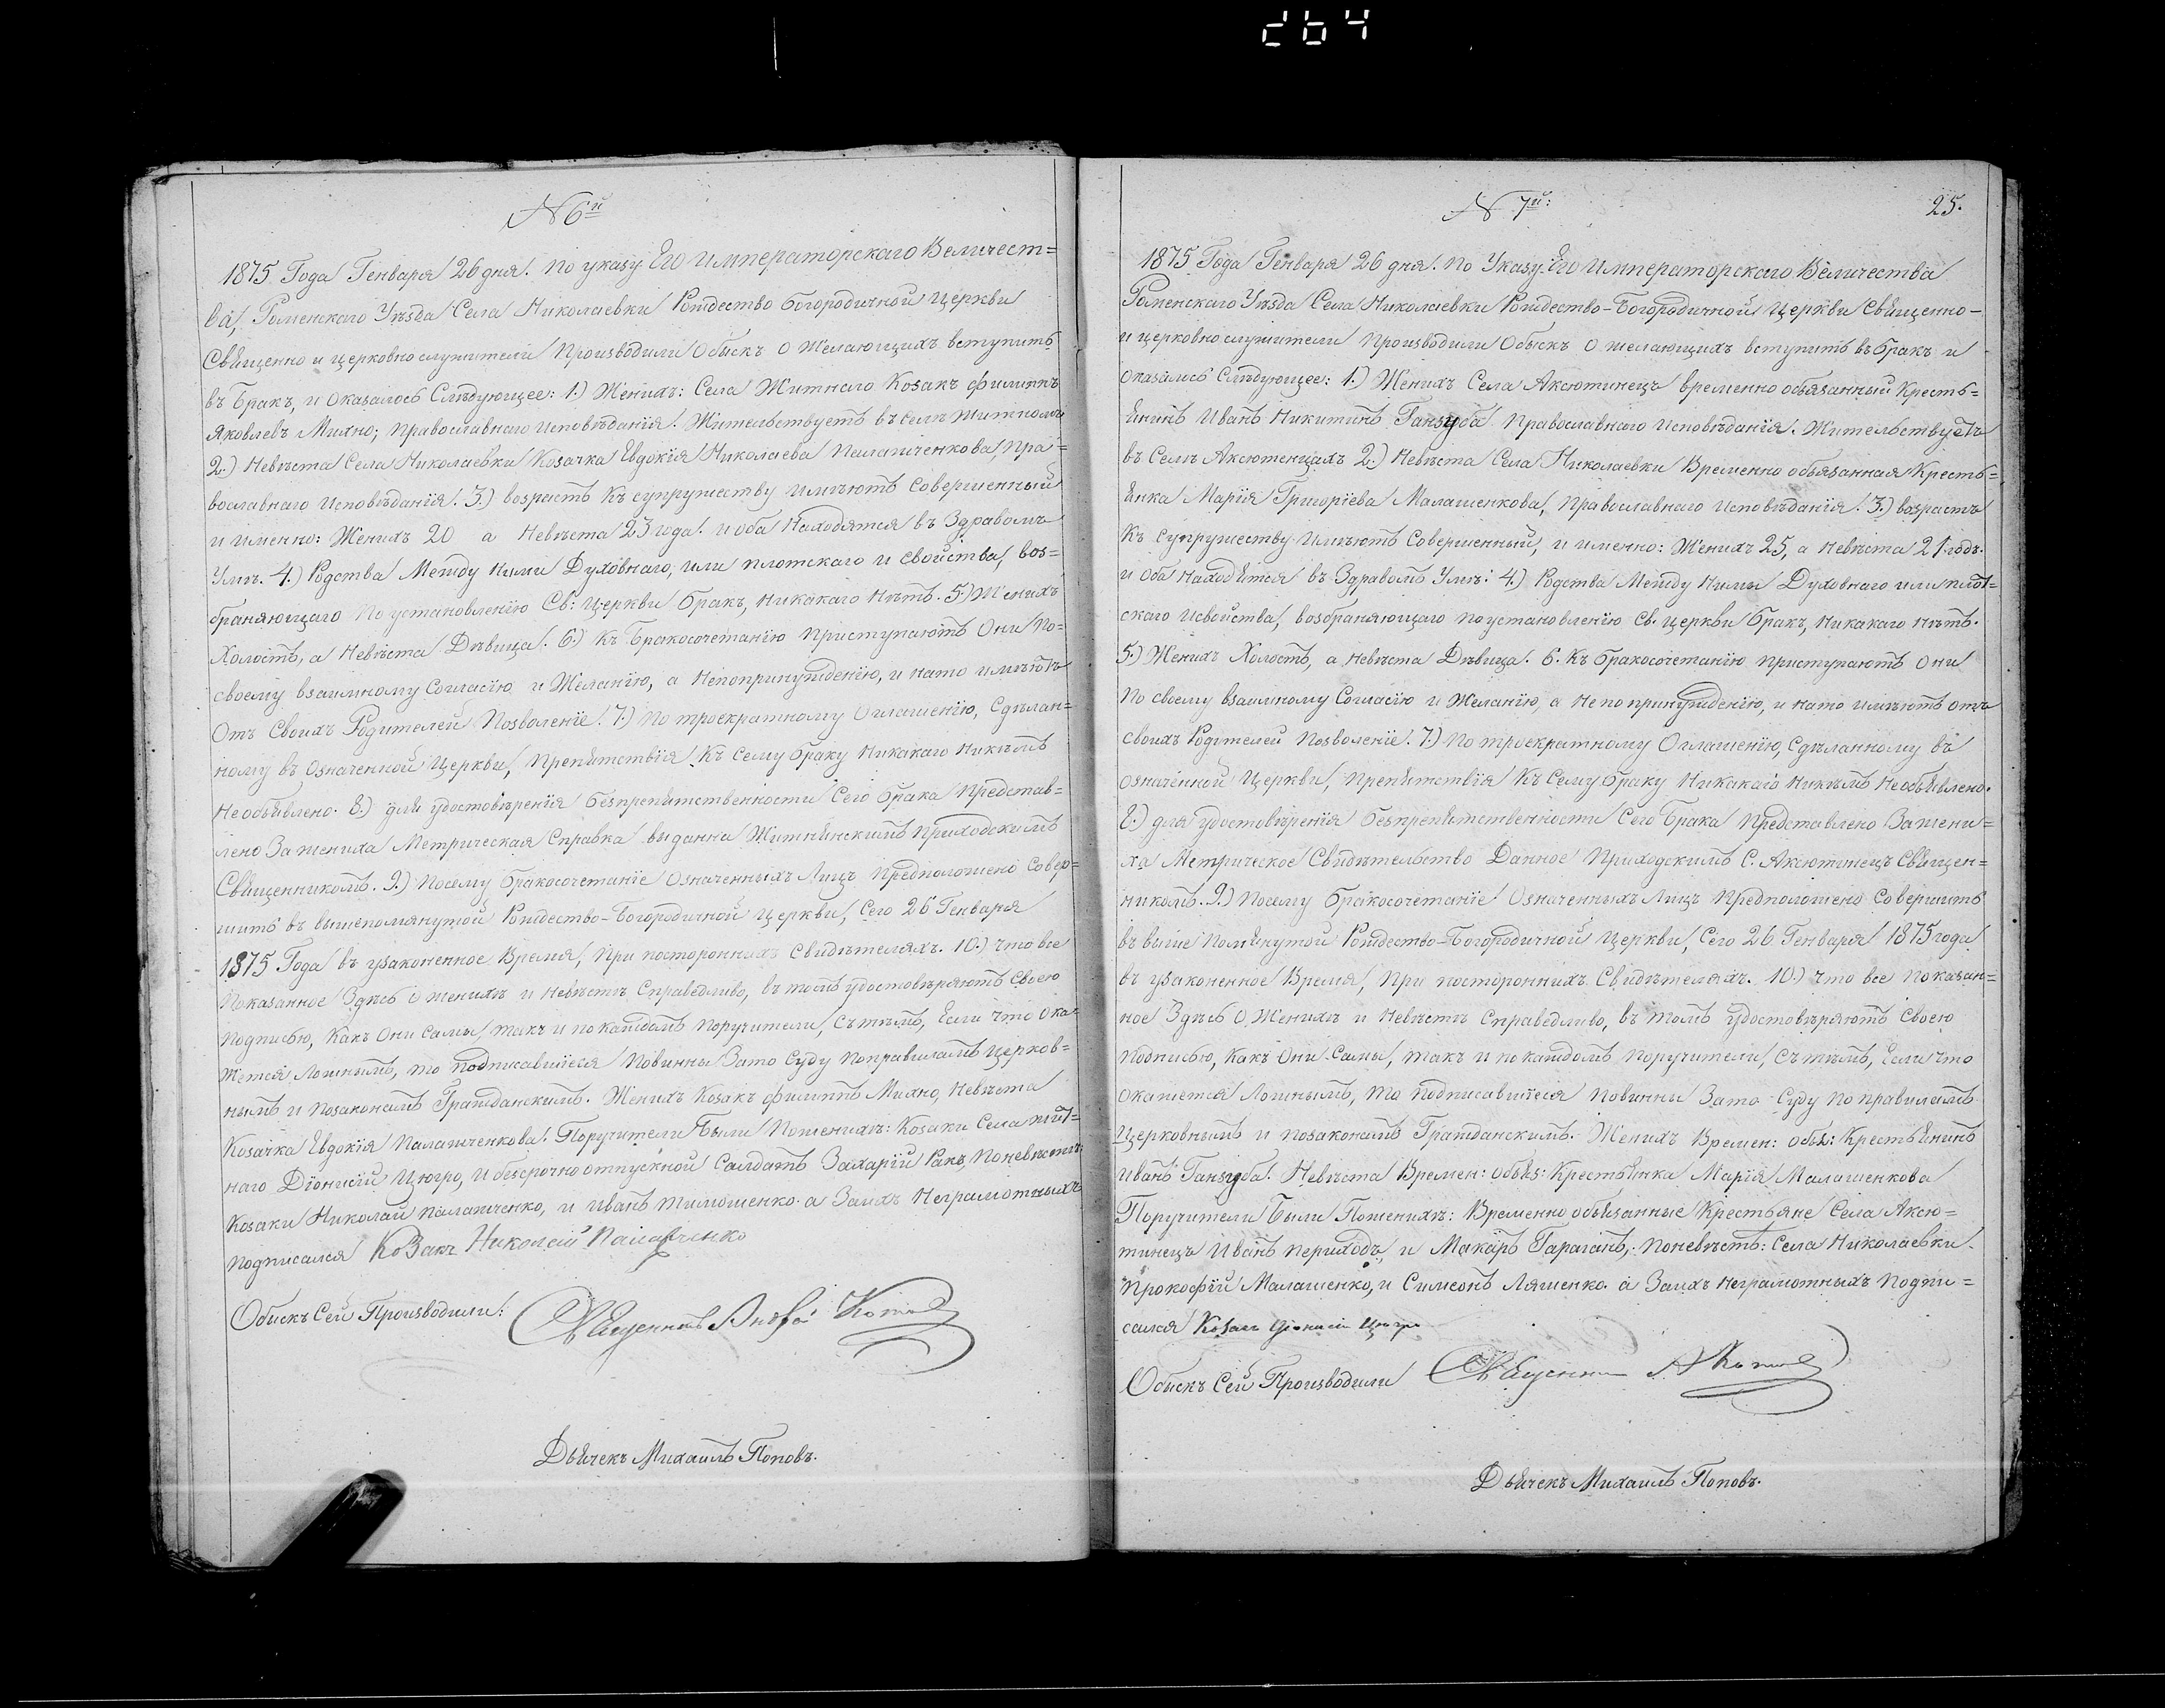 264
N 6й
1875 Года Генваря 26 дня. По указу Его Императорскаго Величест=
ва, Роменскаго Уѣзда Села Николаевки Рождество Богородичной Церкви
Священно и церковно служители Производили Обыскъ о Желающихъ вступить
въ Бракъ, и Оказалось Слѣдующее: 1.) Женихъ: Села Житнаго Козакъ Филиппъ
Яковлевъ Михно; Православнаго Исповѣданія. Жительствуетъ въ селѣ Житномъ
2.) Невѣста Села Николаевки Козачка Евдокія Николаева Палапченкова, Пра=
вославнаго Исповѣданія. 3.) возрастъ Къ супружеству Имѣютъ Совершенный
и именно: Женихъ 20 а Невѣста 23 года. и оба Находятся въ Здравомъ
Умѣ. 4.) Родства Между Ними Духовнаго, или плотскаго и свойства, воз=
браняющаго По установленію Св: Церкви бракъ, Никакаго Нѣтъ. 5.) Женихъ
Холостъ, а Невѣста Дѣвица. 6.) Къ Бракосочетанію Приступаютъ Они По=
своему взаимному Согласію и Желанію, а Непопринужденію, и нато имѣютъ
Отъ Своихъ Родителей Позволеніе. 7.) По троекратному Оглашенію, Сдѣлан=
ному въ Означенной Церкви, Препятствія Къ Сему браку Никакаго Никѣмъ
Необъявлено. 8.) для удостовѣренія безпрепятственности Сего брака Представ=
лено За жениха Метрическая Справка выданна Житнянскимъ Приходскимъ
Священникомъ. 9.) Посему бракосочетаніе Означенныхъ Лицъ Предположено Совер=
шить въ вышепомянутой Рождество-Богородичной Церкви, Сего 26 Генваря
1875 Года въ узаконенное Время, При постороннихъ Свидѣтеляхъ. 10.) что все
Показанное Здѣсь о женихѣ и Невѣстѣ Справедливо, въ томъ удостовѣряютъ Своею
Подписью, Какъ Они Самы, такъ и по каждомъ Поручители, Съ тѣмъ, Если что ока=
жется Ложнымъ, то подписавшіеся Повинны Зато Суду Поправиламъ Церков=
нымъ и Позаконамъ Гражданскимъ. Женихъ Козакъ Филиппъ Михно, Невѣста
Козачка Евдокія Палапченкова. Поручители Были Поженихѣ: Козаки Села Жит=
наго Діонисій Цюгро, и безсрочно отпускной Салдатъ Захарій Ракъ, Поневѣстѣ
Козаки Николай Палапченко, и Иванъ Тимошенко. а Заихъ Неграмотныхъ
Подписался Козакъ Николай Палапченко
Обыскъ Сей Производили: Священникъ Андрей
Дьячекъ Михаилъ Поповъ.
N 7й: 25.
1875 Года Генваря 26 дня. По Указу Его Императорскаго Величества
Роменскаго Уѣзда Села Николаевки Рождество-Богородичной Церкви Священно-
и церковно служители Производили Обыскъ о желающихъ вступить въ бракъ и
Оказалось Слѣдующее: 1.) Женихъ Села Аксютинецъ временно обязанный Кресть=
янинъ Иванъ Никитинъ Ганзуба Православнаго Исповѣданія. Жительствуетъ
въ Селѣ Аксютенцахъ 2.) Невѣста Села Николаевки Временно обязанная Кресть=
янка Марія Григоріева Малашенкова, Православнаго Исповѣданія. 3.) возрастъ
Къ Супружеству Имѣютъ Совершенный, и именно: Женихъ 25, а Невѣста 21 годъ.
и оба Находятся въ Здравомъ Умѣ: 4.) Родства Между Нимы Духовнаго или плот=
скаго Исвойства, возбраняющаго поустановленію Св. Церкви бракъ, Никакаго Нѣтъ.
5.) Женихъ Холостъ, а Невѣста Дѣвица. 6. Къ бракосочетанію приступаютъ Они
По своему взаимному Согласію и Желанію, а Не по принужденію, и нато имѣютъ отъ
своихъ Родителей Позволеніе. 7.) По троекратному Оглашенію, Сдѣланному въ
Означенной Церкви, Препятствія Къ Сему браку Никакаго Никѣмъ Необъявлено.
8.) для удостовѣренія безпрепятственности Сего Брака Представлено За жени=
ха Метрическое Свидѣтельство Данное Приходскимъ С. Аксютинецъ Священ=
никомъ. 9.) Посему бракосочетаніе Означенныхъ Лицъ Предположено Совершить
въ выше Помянутой Рождество-Богородичной Церкви, Сего 26 Генваря 1875 года
въ узаконенное Время, При постороннихъ Свидѣтеляхъ. 10.) что все Показан=
ное Здѣсь О Женихѣ и Невѣстѣ Справедливо, въ томъ удостовѣряютъ Своею
Подписью, Какъ Они Самы, такъ и по каждомъ Поручители, Съ тѣмъ, Если что
окажется Ложнымъ, то подписавшіеся Повинны Зато Суду По правиламъ
Церковнымъ и Позаконамъ Гражданскимъ. Женихъ Времен: обяз: Крестьянинъ
Иванъ Ганзуба. Невѣста Времен: обяз: Крестьянка Марія Малашенкова
Поручители Были Поженихѣ: Временно обязанные Крестьяне Села Аксю=
тинецъ Иванъ Периходъ, и Макаръ Гараганъ, Поневѣстѣ: Села Николаевки
Прокофій Малашенко, и Симеонъ Ляшенко. а Заихъ Неграмотныхъ Подпи=
сался Козакъ Діонисій Цюгро
Обыскъ Сей Производили Священникъ А
Дьячекъ Михаилъ Поповъ.